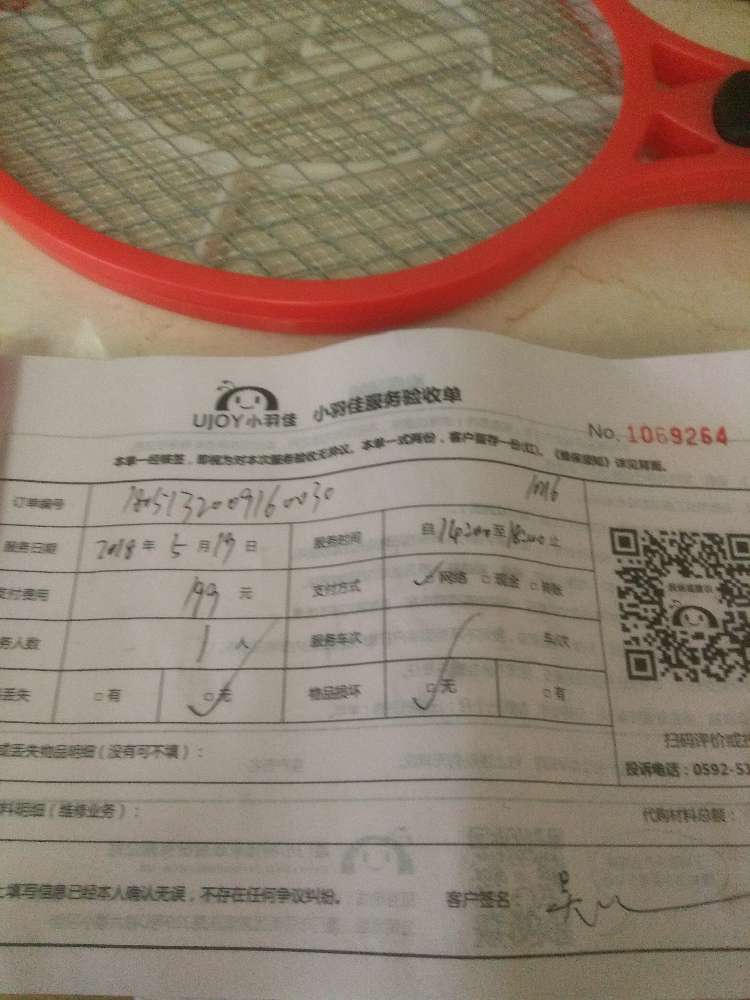 UJOY小羽佳 小羽佳服务验收单
No. 1069264
本单一经接签，即视为对本次服务验收无异议。本单一式两份，客户留存一份(红)。《维保须知》详见背面。
订单编号 1805132009160030 1016
服务日期 2018年5月19日 服务时间 自14:00至18:00止
支付费用 199元 支付方式 网络 □现金 □转账
务人数 1人 服务车次 车/次
丢失 □有 □无 物品损坏 □无 □有
或丢失物品明细（没有可不填）：
扫码评价或
投诉电话：0592-5
料明细（维修业务）： 代购材料总额：
上填写信息已经本人确认无误，不存在任何争议纠纷。 客户签名：吴